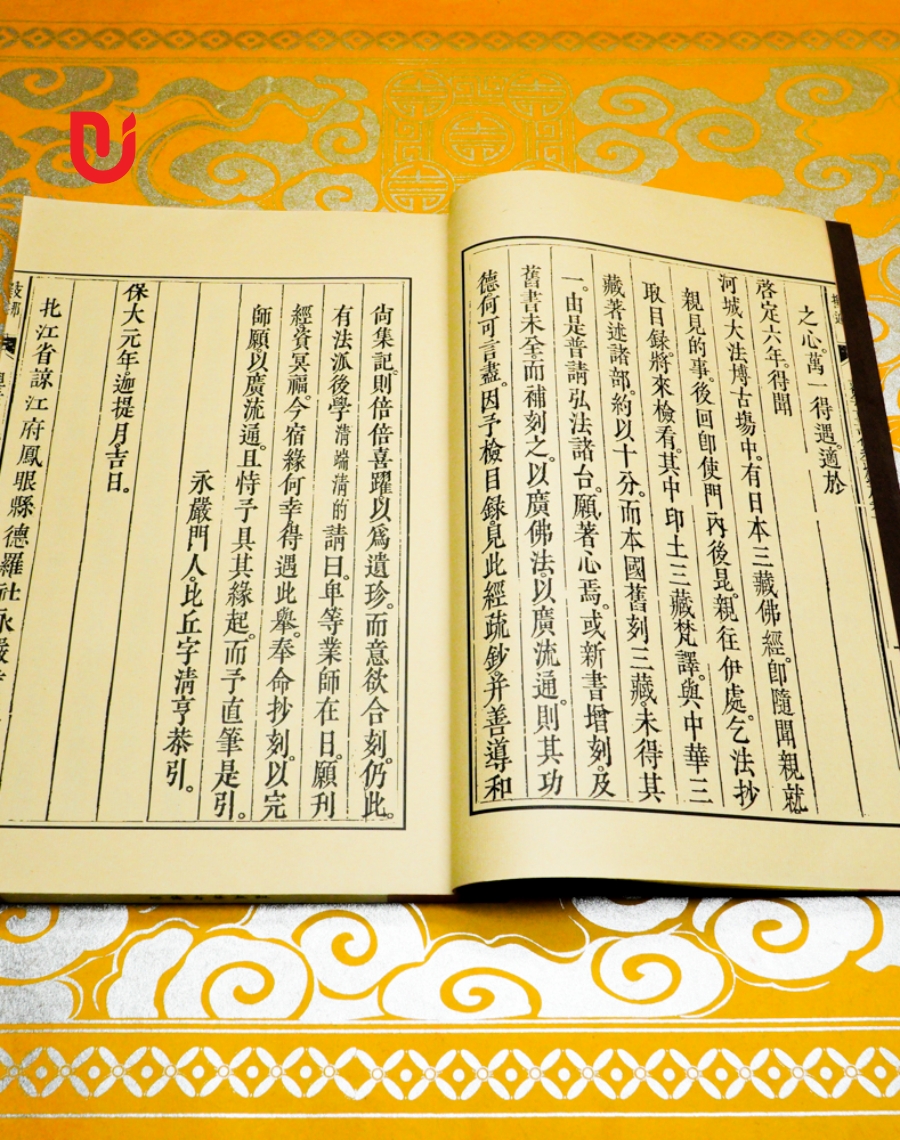 之心。萬一得遇。適於
啓定六年。得聞
河城大法博古塲中。有日本三藏佛經。卽隨聞親就
親見的事。後回卽使門內後昆。親往伊處。乞法抄
取目録。將來檢看。其中印土三藏梵譯。與中華三
藏著述諸部。約以十分。而本國舊刻三藏。未得其
一。由是普請弘法諸台。願著心焉。或新書增刻。及
舊書未全。而補刻之。以廣佛法。以廣流通。則其功
德何可言盡。因予檢目録。見此經疏鈔。并善導和
尙集記。則倍倍喜躍。以爲遺珍。而意欲合刻。仍此。
有法派後學清端清的請曰。卑等業師在日。願刊
經資冥福。今宿緣何幸得遇此舉。奉命抄刻。以完
師願。以廣流通。且恃予具其緣起。而予直筆是引。
永嚴門人。比丘字清亨恭引。
保大元年。迦提月。吉日。
北江省諒江府鳳眼縣德羅社永嚴